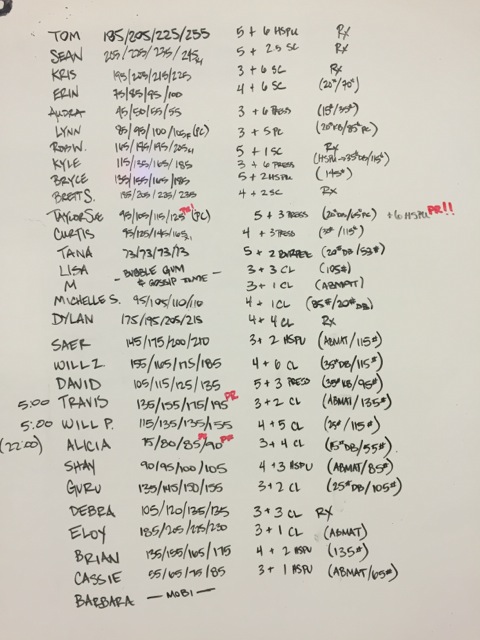 TOM 185/205/225/255 5 + 6 HSPU Rx
SEAN 205/225/235/245 5 + 25 SC Rx
KRIS 195/205/215/225 3 + 6 SC Rx
ERIN 75/85/95/100 4 + 6 SC (20#/70#)
AUDRA 45/50/55/55 3 + 6 PRESS (15#/35#)
LYNN 85/95/100/105F (PC) 3 + 5 PC (20#KB/85#PC)
ROB W. 165/185/195/205 5 + 1 SC Rx
KYLE 115/135/165/185 3 + 6 PRESS (HSPU→35#DB/115#)
BRYCE 135/155/165/185 5 + 2 HSPU (145#)
BRETT S. 185/205/225/235 4 + 2 SC Rx
TAYLOR SUE 95/105/115/125 PR! (PC) 5 + 3 PRESS (20#DB/65#PC) +6 HSPU PR!!
CURTIS 95/125/145/165 4 + 3 PRESS (35#/115#)
TANA 73/73/73/73 5 + 2 BURPEE (20#DB/53#)
LISA - BUBBLE GUM & GOSSIP TIME - 3 + 3 CL (105#)
M 3 + 1 CL (ABMAT)
MICHELLE S. 95/105/110/110 4 + 1 CL (85#/20#DB)
DYLAN 175/195/205/215 4 + 4 CL Rx
SAER 145/175/200/210 3 + 2 HSPU (ABMAT/115#)
WILL Z. 155/165/175/185 4 + 6 CL (35#DB/115#)
DAVID 105/115/125/135 5 + 3 PRESS (35#KB/95#)
5:00 TRAVIS 135/155/175/195 PR 3 + 2 CL (ABMAT/135#)
5:00 WILL P. 115/135/135/155 4 + 5 CL (25#/115#)
(22:00) ALICIA 75/80/85 PR/90 PR 3 + 4 CL (15#DB/55#)
SHAY 90/95/100/105 4 + 3 HSPU (ABMAT/85#)
GURU 135/145/150/155 3 + 2 CL (25#DB/105#)
DEBRA 105/120/135/135 3 + 3 CL Rx
ELOY 185/205/225/230 3 + 1 CL (ABMAT)
BRIAN 135/155/165/175 4 + 2 HSPU (135#)
CASSIE 55/65/75/85 3 + 1 HSPU (ABMAT/65#)
BARBARA - MOBI -